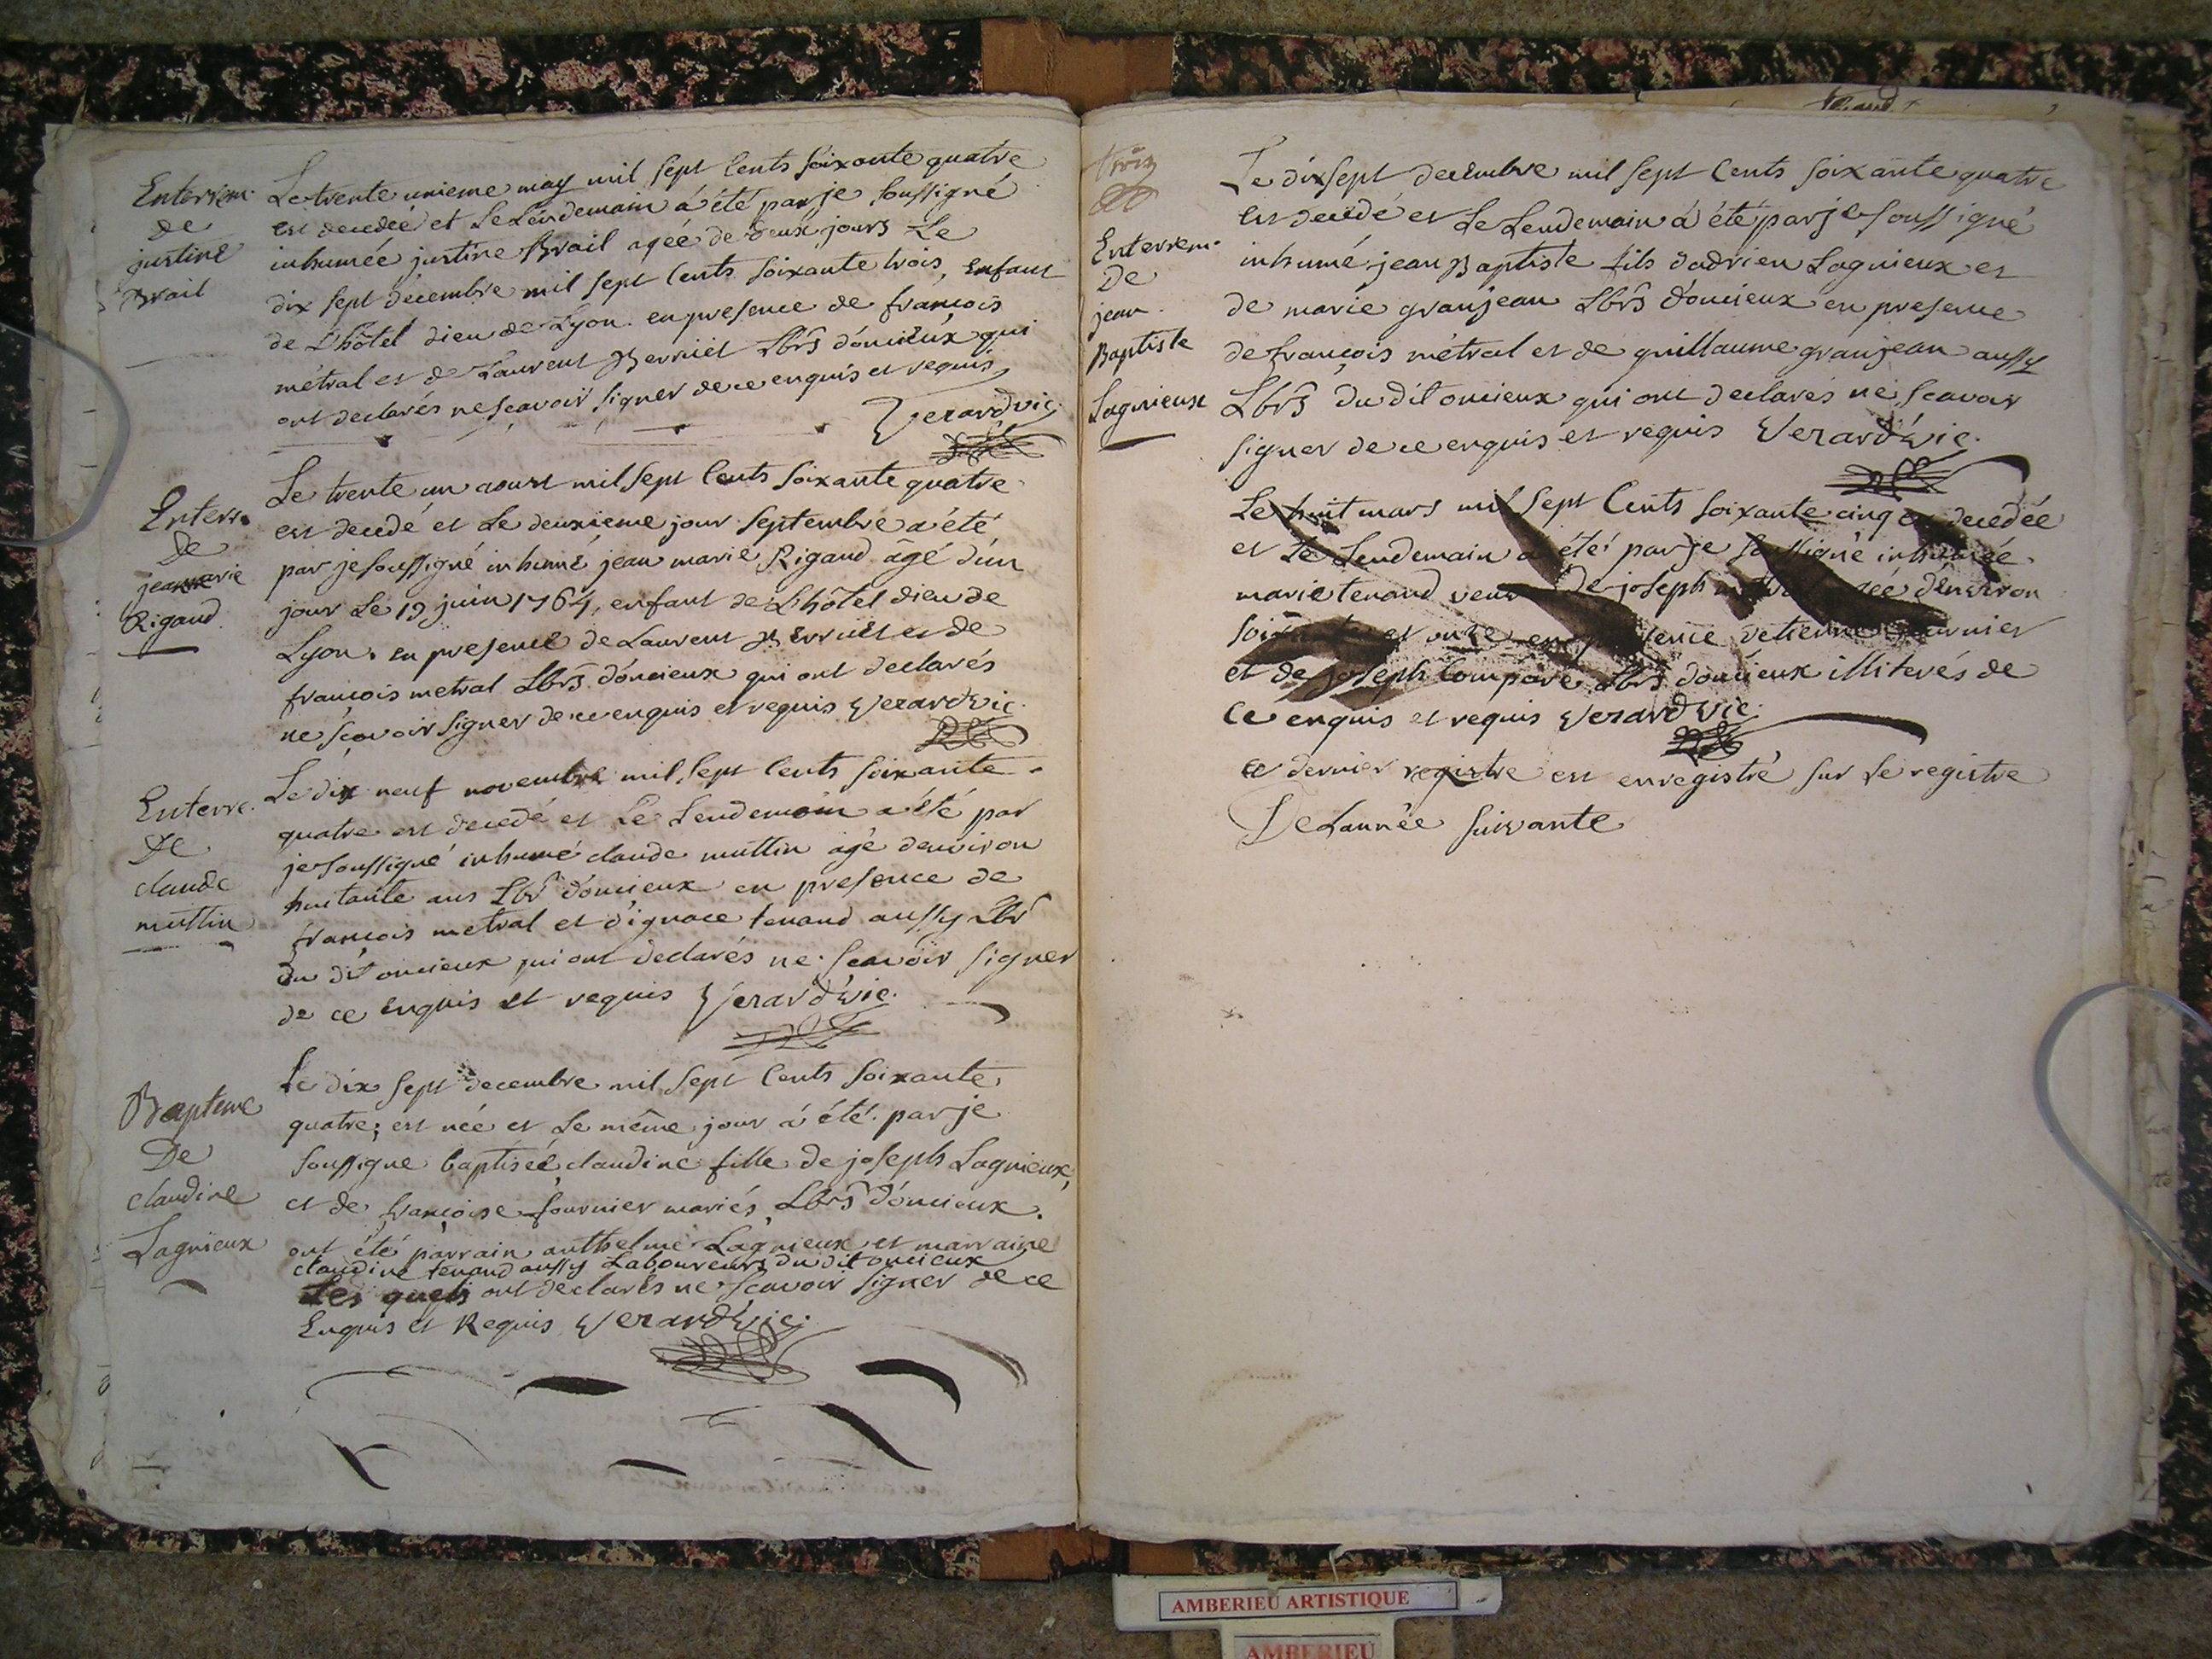 Enterrem.
de
justine
Brail
Le trente unieme may mil sept Cents soixante quatre
est decedée et Le Lendemain á été par je soussigné
inhumée justine Brail ageé de deux jours Le
dix sept décembre mil sept Cents soixante trois, Enfant
de L'hôtel dieu de Lyon. en presence de françois
métral et de Laurent Berruiet Lbrs d'oncieux qui
ont declarés ne sçavoir signer de ce enquis et requis
Verard vic.
Enterr.
De
jean marie
Rigaud
Le trente un aoust mil sept Cents soixante quatre
est decedé et Le deuxieme jour septembre a été
par je soussigné inhumé jean marie Rigaud âgé d'un
jour Le 19 juin 1764, enfant de L'hôtel dieu de
Lyon. en presence de Laurent Berruiet et de
françois metral Lbrs d'oncieux qui ont declarés
ne sçavoir signer de ce enquis et requis Verard vic.
Enterre.
De
claude
muttin
Le dix neuf novembre mil sept Cents soixante
quatre est decedé et Le Lendemain a été par
je soussigné inhumé claude muttin âgé denviron
huitante ans Lbr d'oncieux en presence de
françois metral et d'ignace tenand aussy Lbr
du dit oncieux qui ont declarés ne sçavoir signer
de ce enquis et requis Verard vic.
Bapteme
De
claudine
Lagnieux
Le dix sept decembre mil sept Cents soixante
quatre, est née et Le même jour á été par je
soussigne baptiséé claudine fille de joseph Lagnieux,
et de françoise fournier mariés Lbrs d'oncieux.
ont été parrain anthelme Lagnieux et marraine
claudine tenand aussy Laboureurs du dit oncieux
Les quels ont declarés ne sçavoir signer de ce
Enquis et Requis Verard vic.
trois
Enterrem.
De
jean
Baptiste
Lagnieux
Le dix sept decembre mil sept Cents soixante quatre
est decédé et Le Lendemain á été par je soussigné
inhumé jean Baptiste fils dadrien Lagnieux et
de marie granjean Lbrs d'oncieux en presence
de françois métral et de guillaume granjean aussy
Lbrs du dit oncieux qui ont declarés ne sçavoir
signer de ce enquis et requis Verard vic.
Le huit mars mil sept Cents soixante cinq est decedée
et Le Lendemain a été par je soussigné inhumée
marie tenand veuve de joseph agée denviron
soixante et onze en presence detienne fournier
et de joseph Compare Lbrs doncieux illiterés de
Ce enquis et requis Verard vic.
ce dernier registre est enregistré sur Le registre
De Lannée suivante
AMBERIEU ARTISTIQUE
AMBERIEU